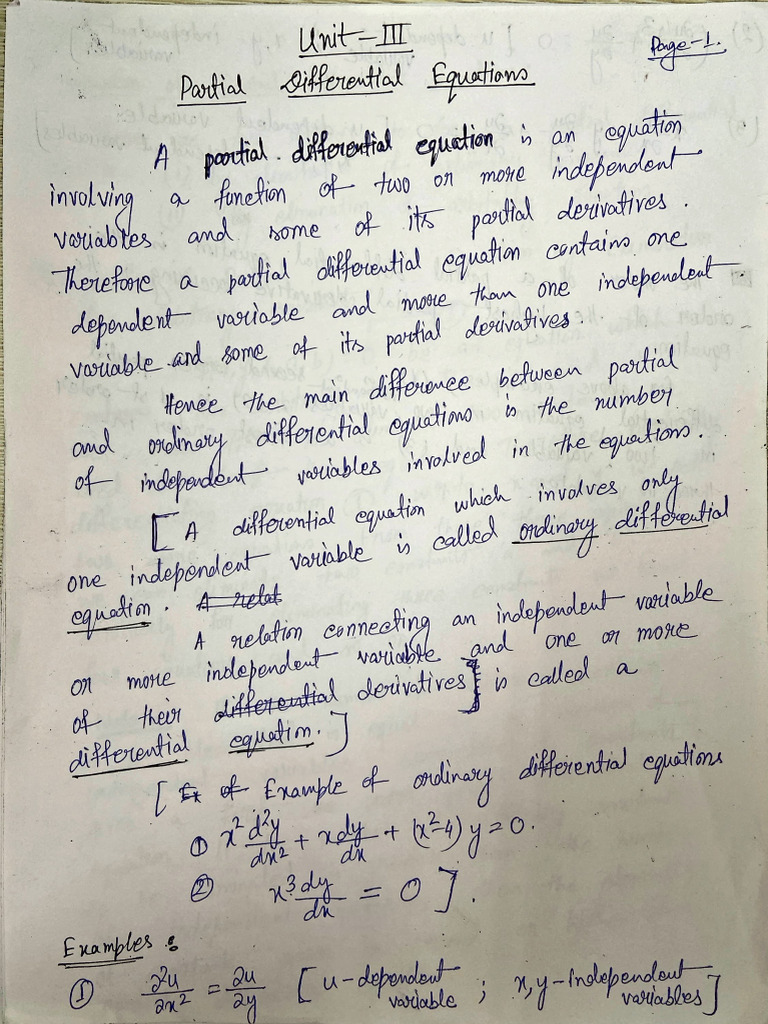 Unit-III
Page-1.
Partial Differential Equations
A partial differential equation is an equation
involving a function of two or more independent
variables and some of its partial derivatives.
Therefore a partial differential equation contains one
dependent variable and more than one independent
variable and some of its partial derivatives.
Hence the main difference between partial
and ordinary differential equations is the number
of independent variables involved in the equations.
[A differential equation which involves only
one independent variable is called ordinary differential
equation. A relat
A relation connecting an independent variable
or more independent variable and one or more
of their differential derivatives] is called a
differential equation.]
[Ex of Example of ordinary differential equations
① x² d²y/dx² + x dy/dx + (x²-4) y = 0.
② x³ dy/dx = 0].
Examples :
① ∂²u/∂x² = ∂u/∂y [u-dependent variable ; x, y-independent variables]